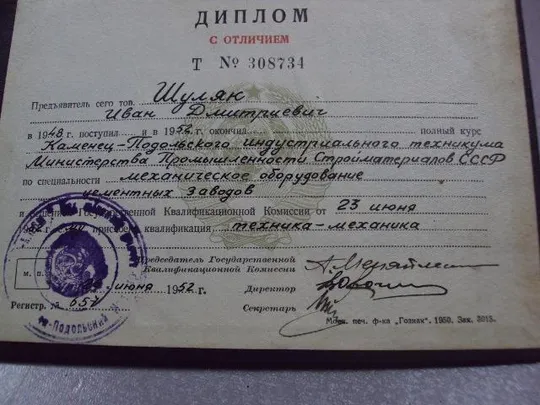 ДИПЛОМ
С ОТЛИЧИЕМ
Т № 308734
Предъявитель сего тов. Шуляк
Иван Дмитриевич
в 1948 г. поступил и в 1952 г. окончил полный курс
Каменец-Подольского индустриального техникума
Министерства Промышленности Стройматериалов СССР
по специальности механическое оборудование
цементных заводов
и Государственной Квалификационной Комиссии от 23 июня
52 г. ему присвоена квалификация техника-механика
Председатель Государственной
Квалификационной Комиссии
м. п.
июня 1952 г.
Директор
Регистр. № 657
Секретарь
Моск. печ. ф-ка „Гознак". 1950. Зак. 3013.